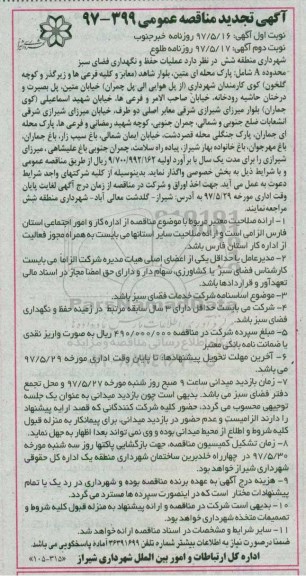 آگهی تجدید مناقصه عمومی ۳۹۹-۹۷
نوبت اول آگهی: ۹۷/۵/۱۶ روزنامه خبرجنوب
نوبت دوم آگهی: ۹۷/۵/۱۷ روزنامه طلوع
شهرداری منطقه شش در نظر دارد عملیات حفظ و نگهداری فضای سبز
محدوده ۸ شامل: پارک محله ای متین، بلوار شاهد (معابر و کلیه فرعی ها و زیرگذر و کوچه
گلخون) کوی کارمندان شهرداری (از پل هوایی الی پل چمران) خیابان متین، پل بصیرت و
درختان حاشیه رودخانه، خیابان صاحب الامر و فرعی ها، خیابان شهید اسماعیلی (کوی
چمران) بلوار میرزای شیرازی شرقی معابر اصلی دو طرف، خیابان میرزای شیرازی شرقی
انشعابات ضلع جنوبی و شمالی، چمران جنوبی، کوچه شهید رمضانی و فرعی ها، پارک محله
ای چمران، پارک جنگلی محله قصردشت، خیابان ایمان شمالی، باغ سیب زار، باغ جماران،
باغ مهرجوان، باغ خانواده بهار شیراز، پیاده راه سلامت، چمران جنوبی باغ علیشاهی، میرزای
شیرازی را برای مدت یک سال با برآورد اولیه ۹/۷۰۰/۹۹۲/۱۶۲ ریال از طریق مناقصه عمومی
و با شرایط ذیل به بخش خصوصی واگذار نماید. بدینوسیله از کلیه شرکتهای واجد شرایط
دعوت به عمل می آید. جهت اخذ اوراق و شرکت در مناقصه از زمان درج آگهی لغایت پایان
وقت اداری مورخه ۹۷/۵/۲۹ به آدرس: شیراز - گلدشت معالی آباد - شهرداری منطقه شش
مراجعه نمایند.
۱- ارائه صلاحیت معتبر مربوط با موضوع مناقصه از اداره کار و امور اجتماعی استان
فارس الزامی است و ارائه صلاحیت سایر استانها می بایست به همراه مجوز فعالیت
از اداره کار استان فارس باشد.
۲- مدیرعامل یا حداقل یکی از اعضای اصلی هیات مدیره شرکت الزاما می بایست
کارشناس فضای سبز یا کشاورزی، سهام دار و دارای حق امضا مجاز در اسناد مالی
تعهدآور و قراردادها باشد.
۳- موضوع اساسنامه شرکت خدمات فضای سبز باشد.
۴- شرکت می بایست حداقل دارای ۳ سال سابقه مرتبط در زمینه حفظ و نگهداری
فضای سبز باشد.
۵- مبلغ سپرده شرکت در مناقصه ۴۹۰/۰۰۰/۰۰۰ ریال به صورت واریز نقدی
یا ضمانت نامه بانکی معتبر
۶- آخرین مهلت تحویل پیشنهادها: تا پایان وقت اداری مورخه ۹۷/۵/۲۹
می باشد.
۷- زمان بازدید میدانی ساعت ۹ صبح روز شنبه مورخه ۹۷/۵/۲۷ و محل تجمع
دفتر فضای سبز می باشد. بدیهی است چون بازدید میدانی به عنوان یک جلسه
توجیهی محسوب می گردد، حضور کلیه شرکت کنندگانی که قصد ارایه پیشنهاد
را دارند الزامیست و عدم حضور در بازدید میدانی، برای پیمانکار به منزله قبول
کلیه شروط و اطلاع از محیط میدانی بوده و وی نمی تواند بعدا اظهار به جهل نماید.
۸- زمان تشکیل کمیسیون مناقصه، جهت بازگشایی پاکتها روز سه شنبه مورخه
۹۷/۵/۳۰ در چهارراه خلدبرین ساختمان شهرداری منطقه یک اداره کل حقوقی
شهرداری شیراز خواهد بود.
۹- هزینه درج آگهی به عهده برنده مناقصه بوده و شهرداری در رد یک یا تمام
پیشنهادات مختار است که در اینصورت سپرده ها مسترد می گردد.
۱۰- بدیهی است شرکت در مناقصه و ارائه پیشنهاد به منزله قبول کلیه شروط و
تصمیمات متخذه شهرداری خواهد بود.
۱۱- سایر شرایط و مشخصات در اسناد مناقصه ارائه خواهد شد.
ضمنا در صورت نیاز به اطلاعات بیشتر شماره تلفن ۳۶۳۹۱۶۹۹ آماده پاسخگویی می باشد.
اداره کل ارتباطات و امور بین الملل شهرداری شیراز
«۱۰۵۰۳۱۵»